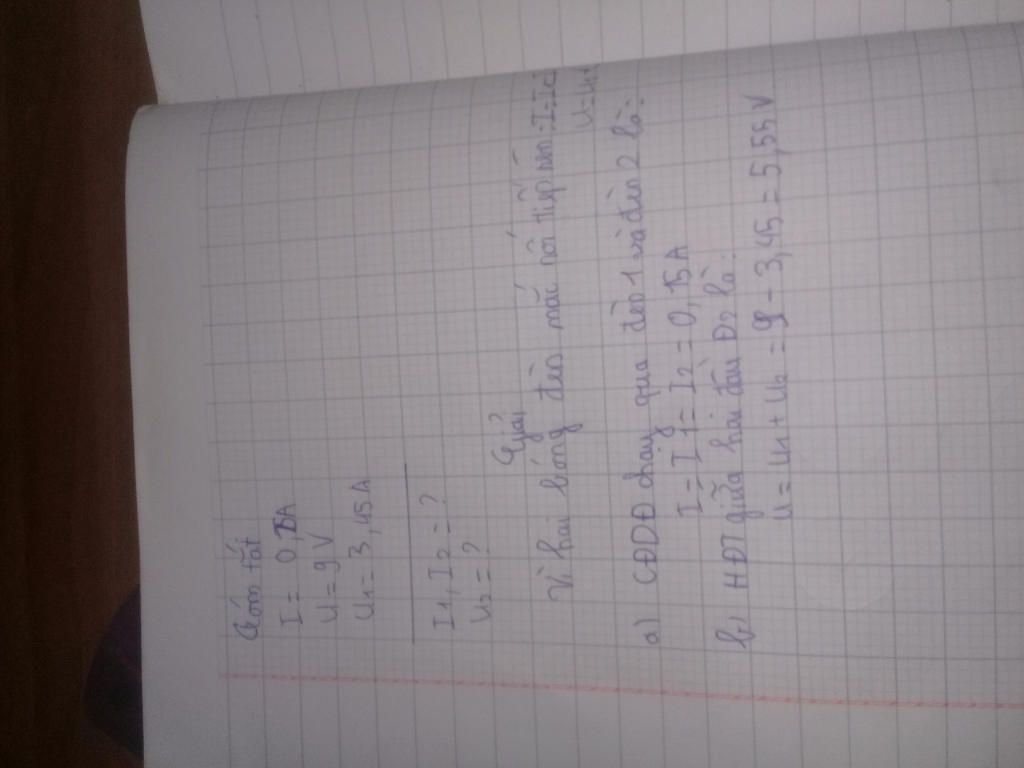 Tóm tắt
I = 0,15A
U = 9V
U1 = 3,45A
I1, I2 = ?
U2 = ?
Giải
Vì hai bóng đèn mắc nối tiếp nên: I=I
U=U1
a) CĐDĐ chạy qua đèn 1 và đèn 2 là:
I = I1 = I2 = 0,15A
b, HĐT giữa hai đầu Đ2 là:
U = U1 + U2 = 9 - 3,45 = 5,55V